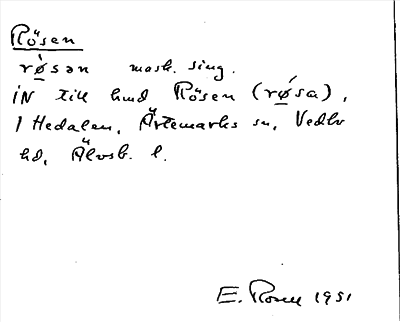 Rösen
rǿsən mask. sing.
iN till hmd Rösen (rǿsa),
i Hedalen, Ärtemarks sn, Vedbo
hd, Älvsb. l.
E. Rosell 1951